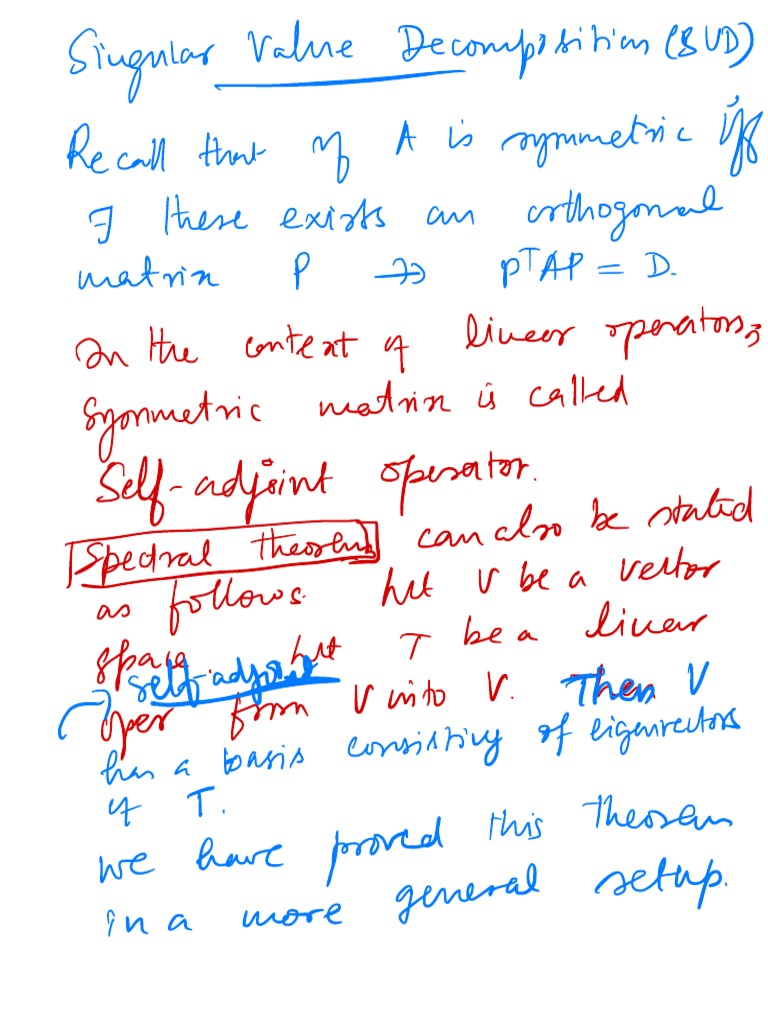 Singular Value Decomposition (SVD)
Recall that if A is symmetric iff
∃ there exists an orthogonal
matrix P ∋ PᵀAP = D.
In the context of linear operators,
Symmetric matrix is called
Self-adjoint operator.
Spectral theorem can also be stated
as follows. Let V be a vector
space. Let T be a linear
self-adjoint
oper from V into V. Then V
has a basis consisting of eigenvectors
of T.
We have proved this theorem
in a more general setup.